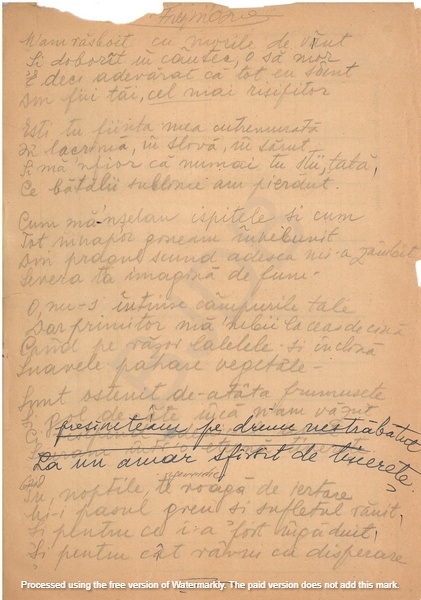 M'am războit cu morile de vânt
Și doborât în cântec, o să mor
E deci adevărat că tot eu sunt
Din fiii tăi, cel mai risipitor
Ești tu ființa mea cutremurată
În lacrimă, în slovă, în sărut
Și mă'nfior că numai tu știi, tată,
Ce bătălii sublime am pierdut.
Cum mă'nșelau ispitele și cum
Tot înhapoi goneam înnebunit
Din pragul scund adesea mi-a zâmbit
Severa ta imagină de fum.
O, nu-s întinse câmpurile tale
Dar primitor mă'mbii la ceas de cină
Când pe răzor lalelele-și înclină
Suavele pahare vegetale
Sunt ostenit de-atâta frumusețe
Și de câte încă n'am văzut
pe drum nestrăbătut
La un amar sfârșit de tinerețe.
nopțile, te roagă de iertare
pasul greu și sufletul rănit,
Și pentru ce i-a fost îngăduit,
Și pentru cât râvnii cu disperare
Processed using the free version of Watermarkly. The paid version does not add this mark.